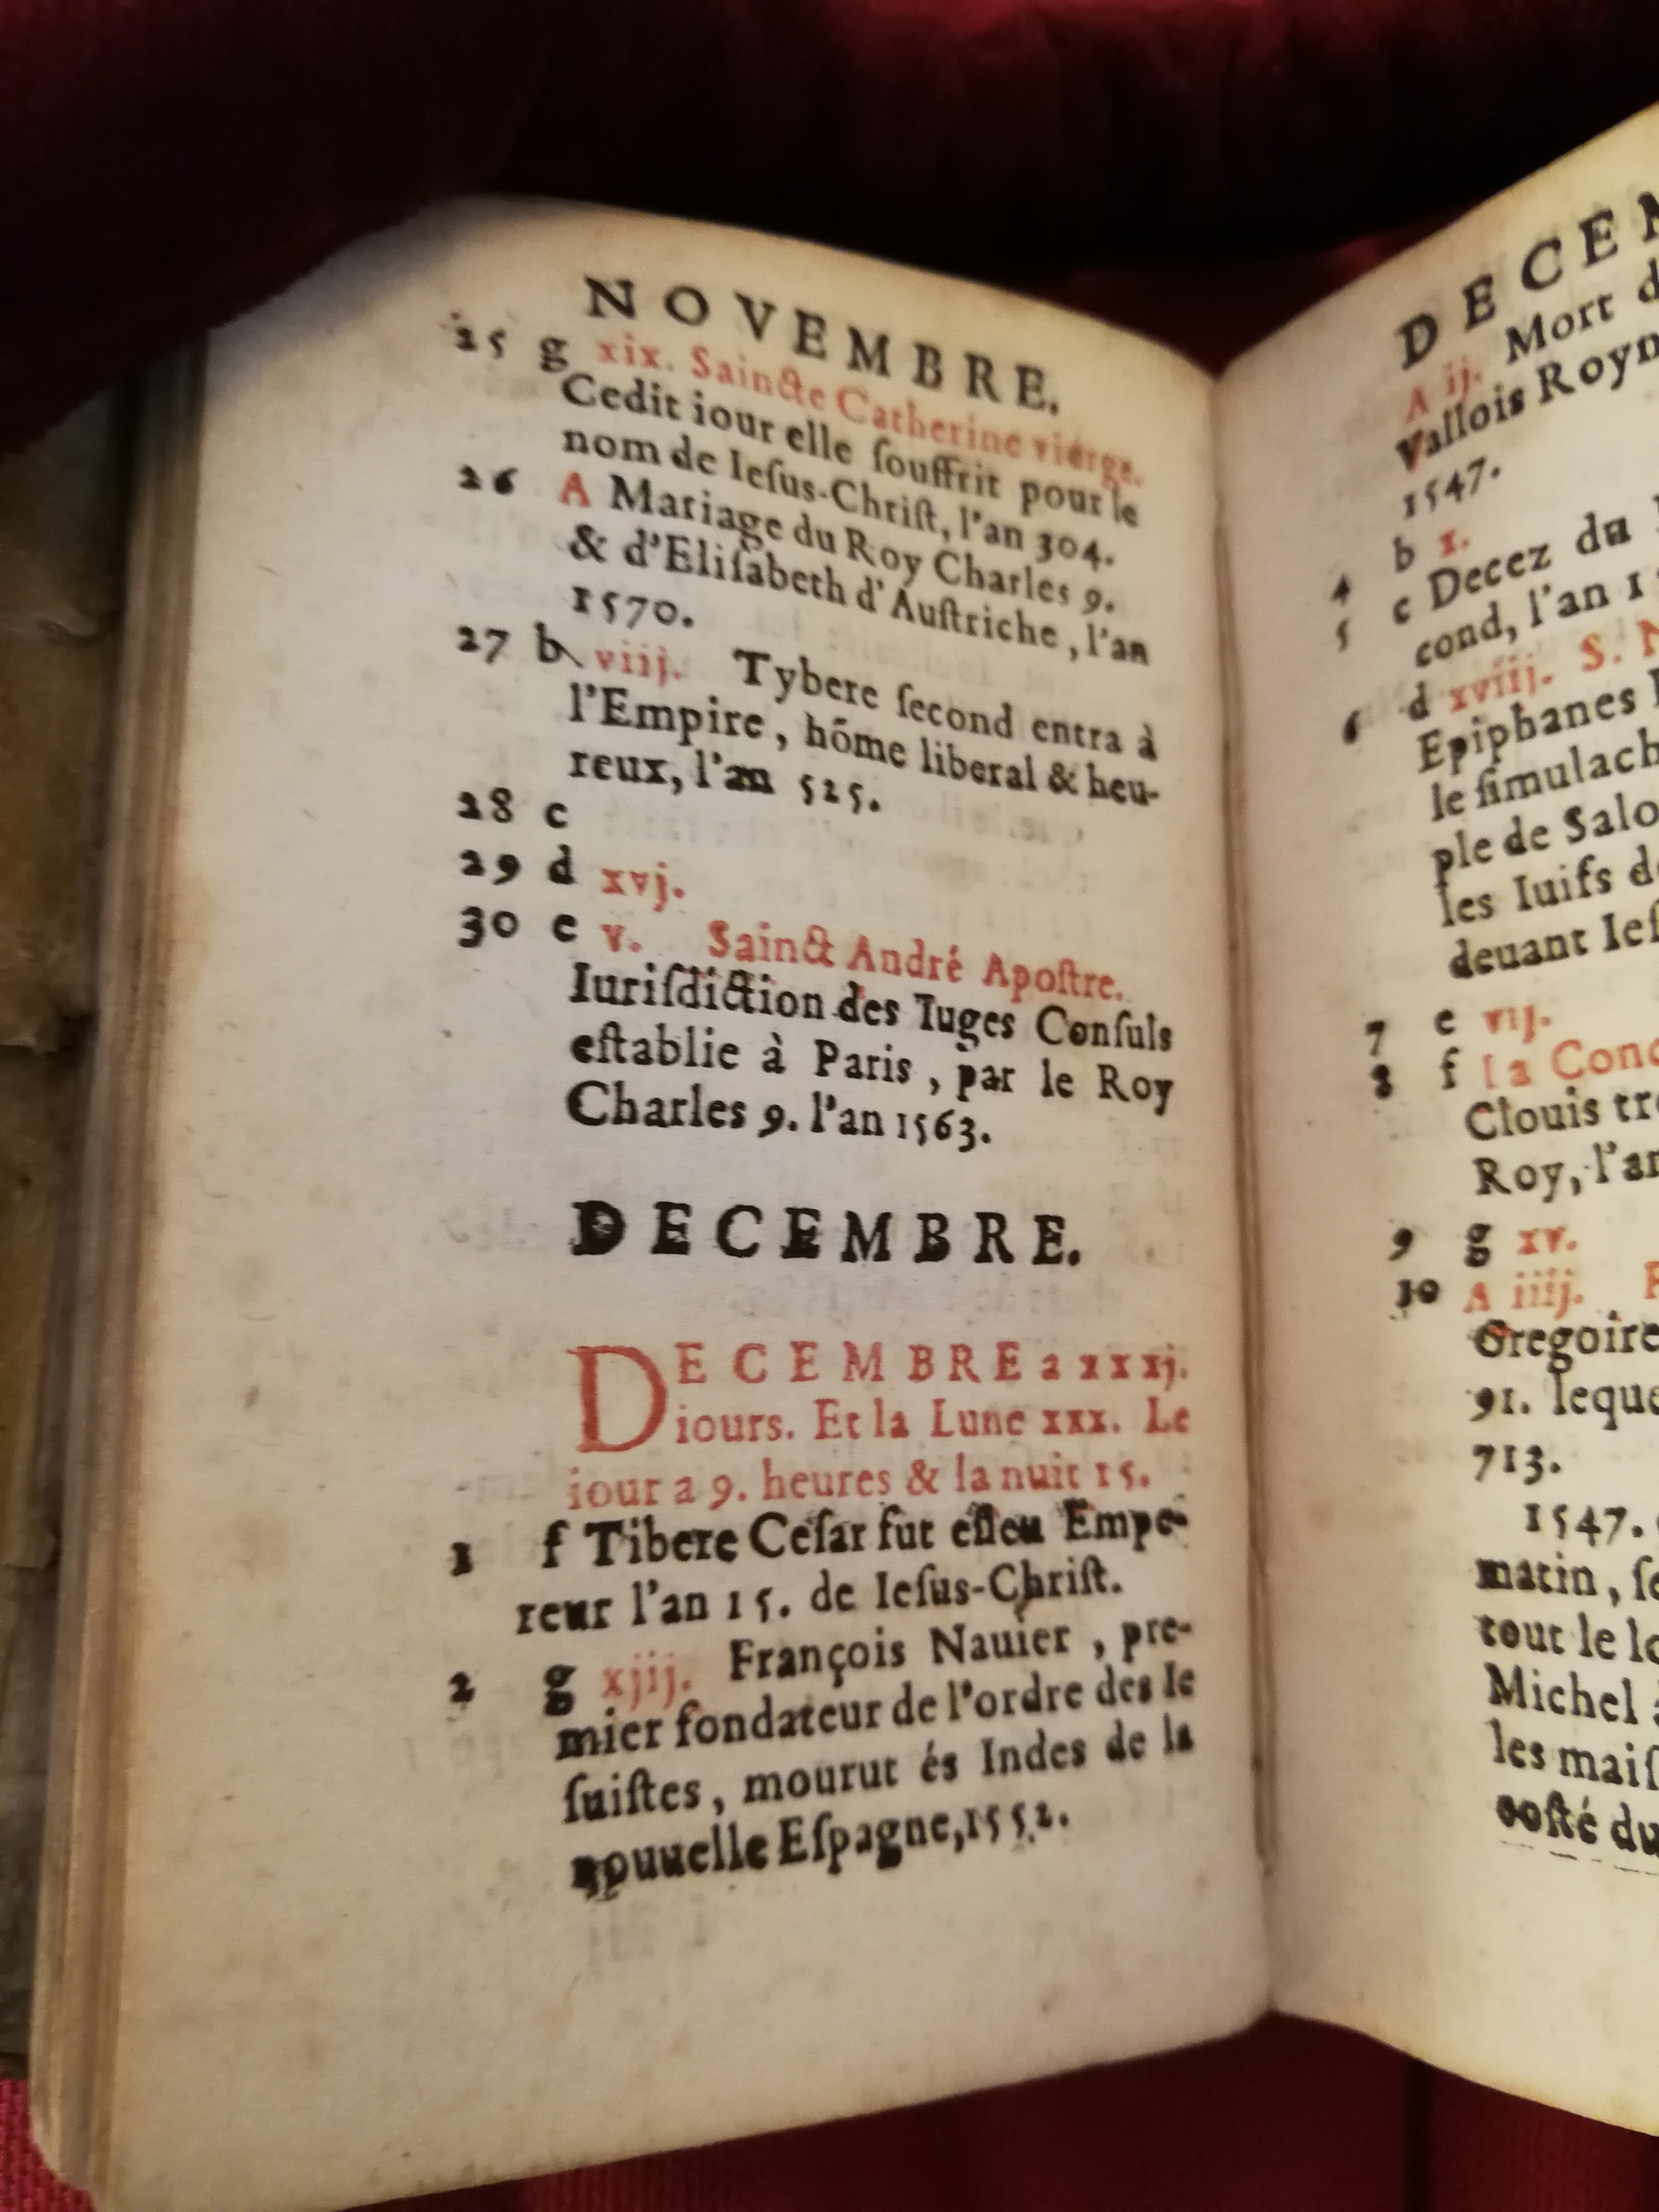 NOVEMBRE.
25 g xix. Saincte Catherine vierge.
Cedit iour elle ſouffrit pour le
nom de Ieſus-Chriſt, l'an 304.
26 A Mariage du Roy Charles 9.
& d'Eliſabeth d'Auſtriche, l'an
1570.
27 b viij. Tybere ſecond entra à
l'Empire, hõme liberal & heu-
reux, l'an 525.
28 c
29 d xvj.
30 e v. Sainct André Apoſtre.
Iuriſdiction des Iuges Conſuls
eſtablie à Paris, par le Roy
Charles 9. l'an 1563.
DECEMBRE.
DECEMBRE a xxxj.
iours. Et la Lune xxx. Le
iour a 9. heures & la nuit 15.
1 f Tibere Ceſar fut eſleu Empe-
reur l'an 15. de Ieſus-Chriſt.
2 g xjij. François Nauier, pre-
mier fondateur de l'ordre des Ie
ſuiſtes, mourut és Indes de la
nouuelle Eſpagne, 1552.
DECEM
A ij. Mort d
Vallois Royn
1547.
4 b x.
5 c Decez du
cond, l'an 1
6 d xviij. S. N
Epiphanes
le ſimulach
ple de Salo
les Iuifs de
deuant Ieſ
7 e vij.
8 f La Conc
Clouis tr
Roy, l'an
9 g xv.
10 A iiij.
Gregoire
91. leque
713.
1547.
matin, ſe
tout le lo
Michel
les maiſ
coſté du